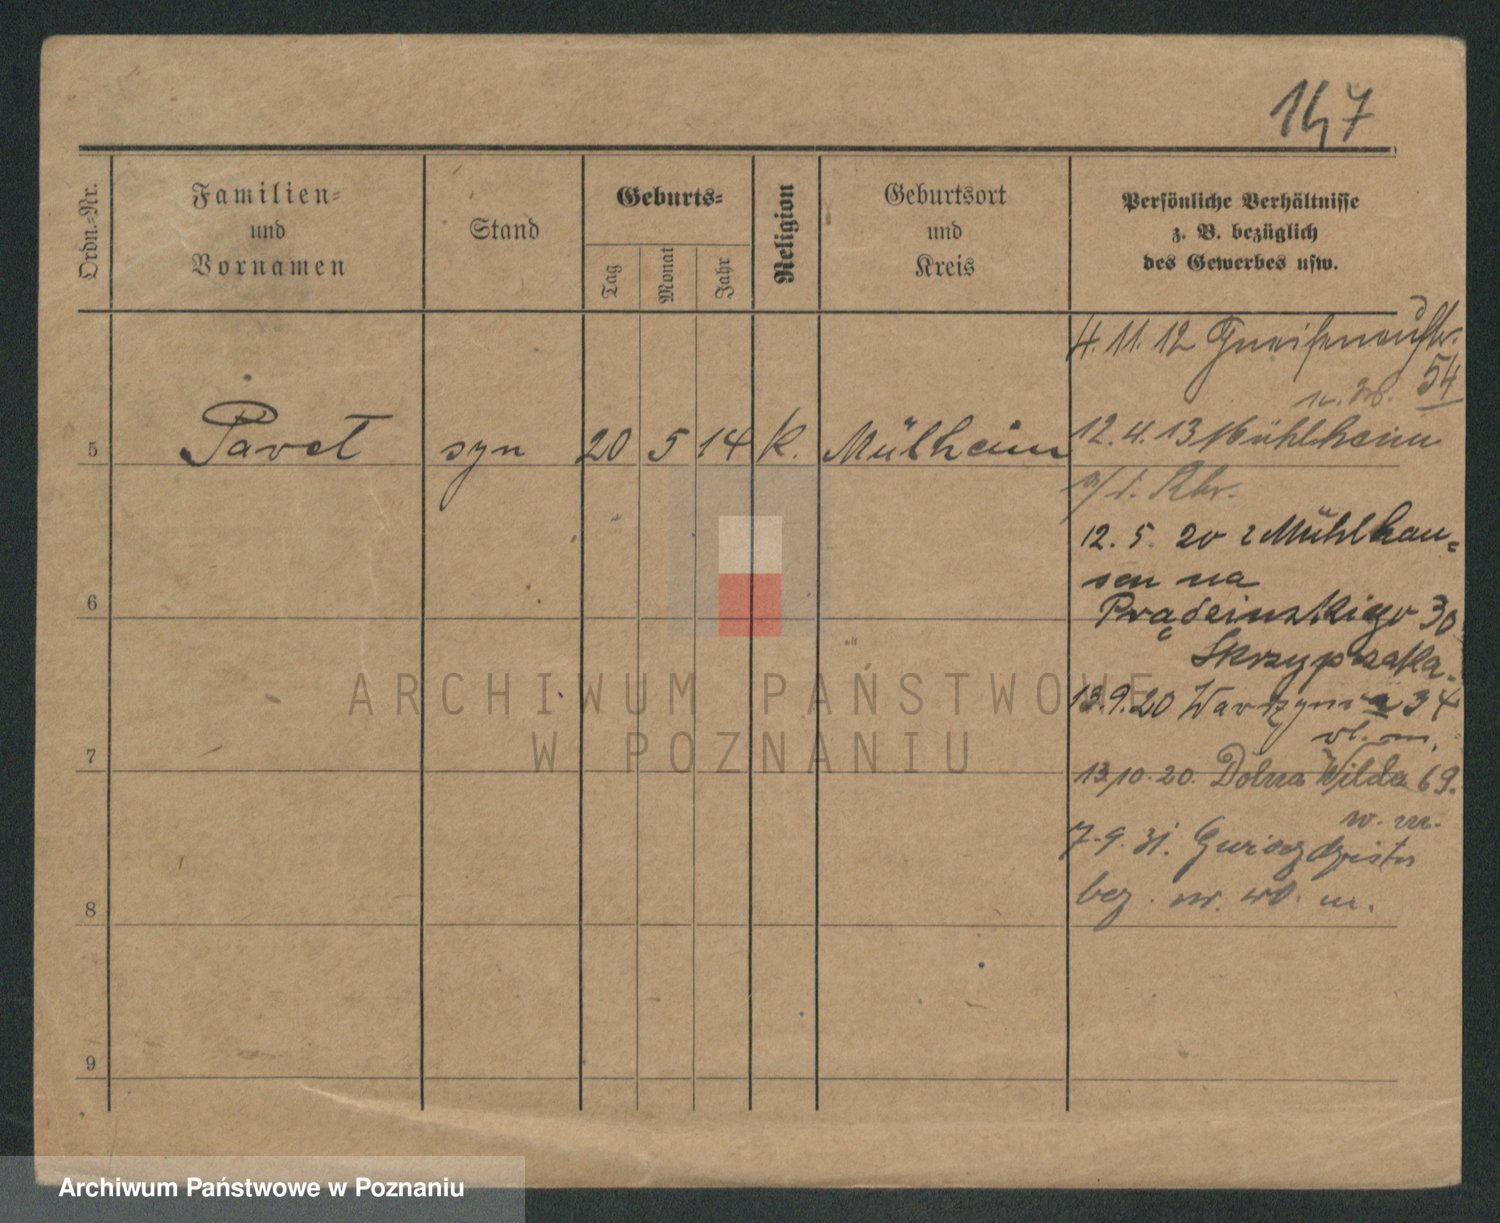 147
Ordn.-Nr.
Familien-
und
Vornamen
Stand
Geburts-
Tag
Monat
Jahr
Religion
Geburtsort
und
Kreis
Persönliche Verhältnisse
z. B. bezüglich
des Gewerbes usw.
4. 11. 12 Gneisenaustr.
54
5 Paweł syn 20 5 14 k. Mülheim
12. 4. 13 Mühlheim
a/d. Rhr.
12. 5. 20 z Mühlhau-
sen na
30
Skrzypczaka.
6
13.9.20 34
wł. m.
7
13.10.20. Dolna Wilda 69.
w. m.
7.9.31.
bez. m.
8
9
ARCHIWUM PAŃSTWOWE
W POZNANIU
Archiwum Państwowe w Poznaniu